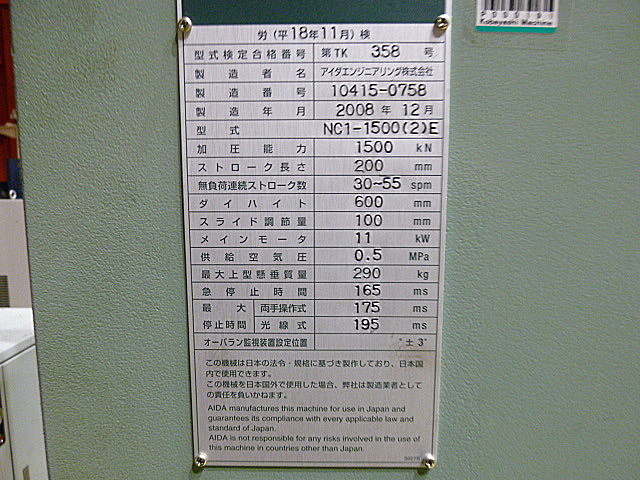 Kobayashi Machine
労(平18年11月)検
型式検定合格番号 第TK 358 号
製造者名 アイダエンジニアリング株式会社
製造番号 10415-0758
製造年月 2008 年 12 月
型式 NC1-1500(2)E
加圧能力 1500 kN
ストローク長さ 200 mm
無負荷連続ストローク数 30~55 spm
ダイハイト 600 mm
スライド調節量 100 mm
メインモータ 11 kW
供給空気圧 0.5 MPa
最大上型懸垂質量 290 kg
急停止時間 165 ms
最大 両手操作式 175 ms
停止時間 光線式 195 ms
オーバラン監視装置設定位置 ° ± 3°
この機械は日本の法令・規格に基づき製作しており、日本国
内で使用できます。
この機械を日本国外で使用した場合、弊社は製造業者として
の責任を負いかねます。
AIDA manufactures this machine for use in Japan and
guarantees its compliance with every applicable law and
standard of Japan.
AIDA is not responsible for any risks involved in the use of
this machine in countries other than Japan.